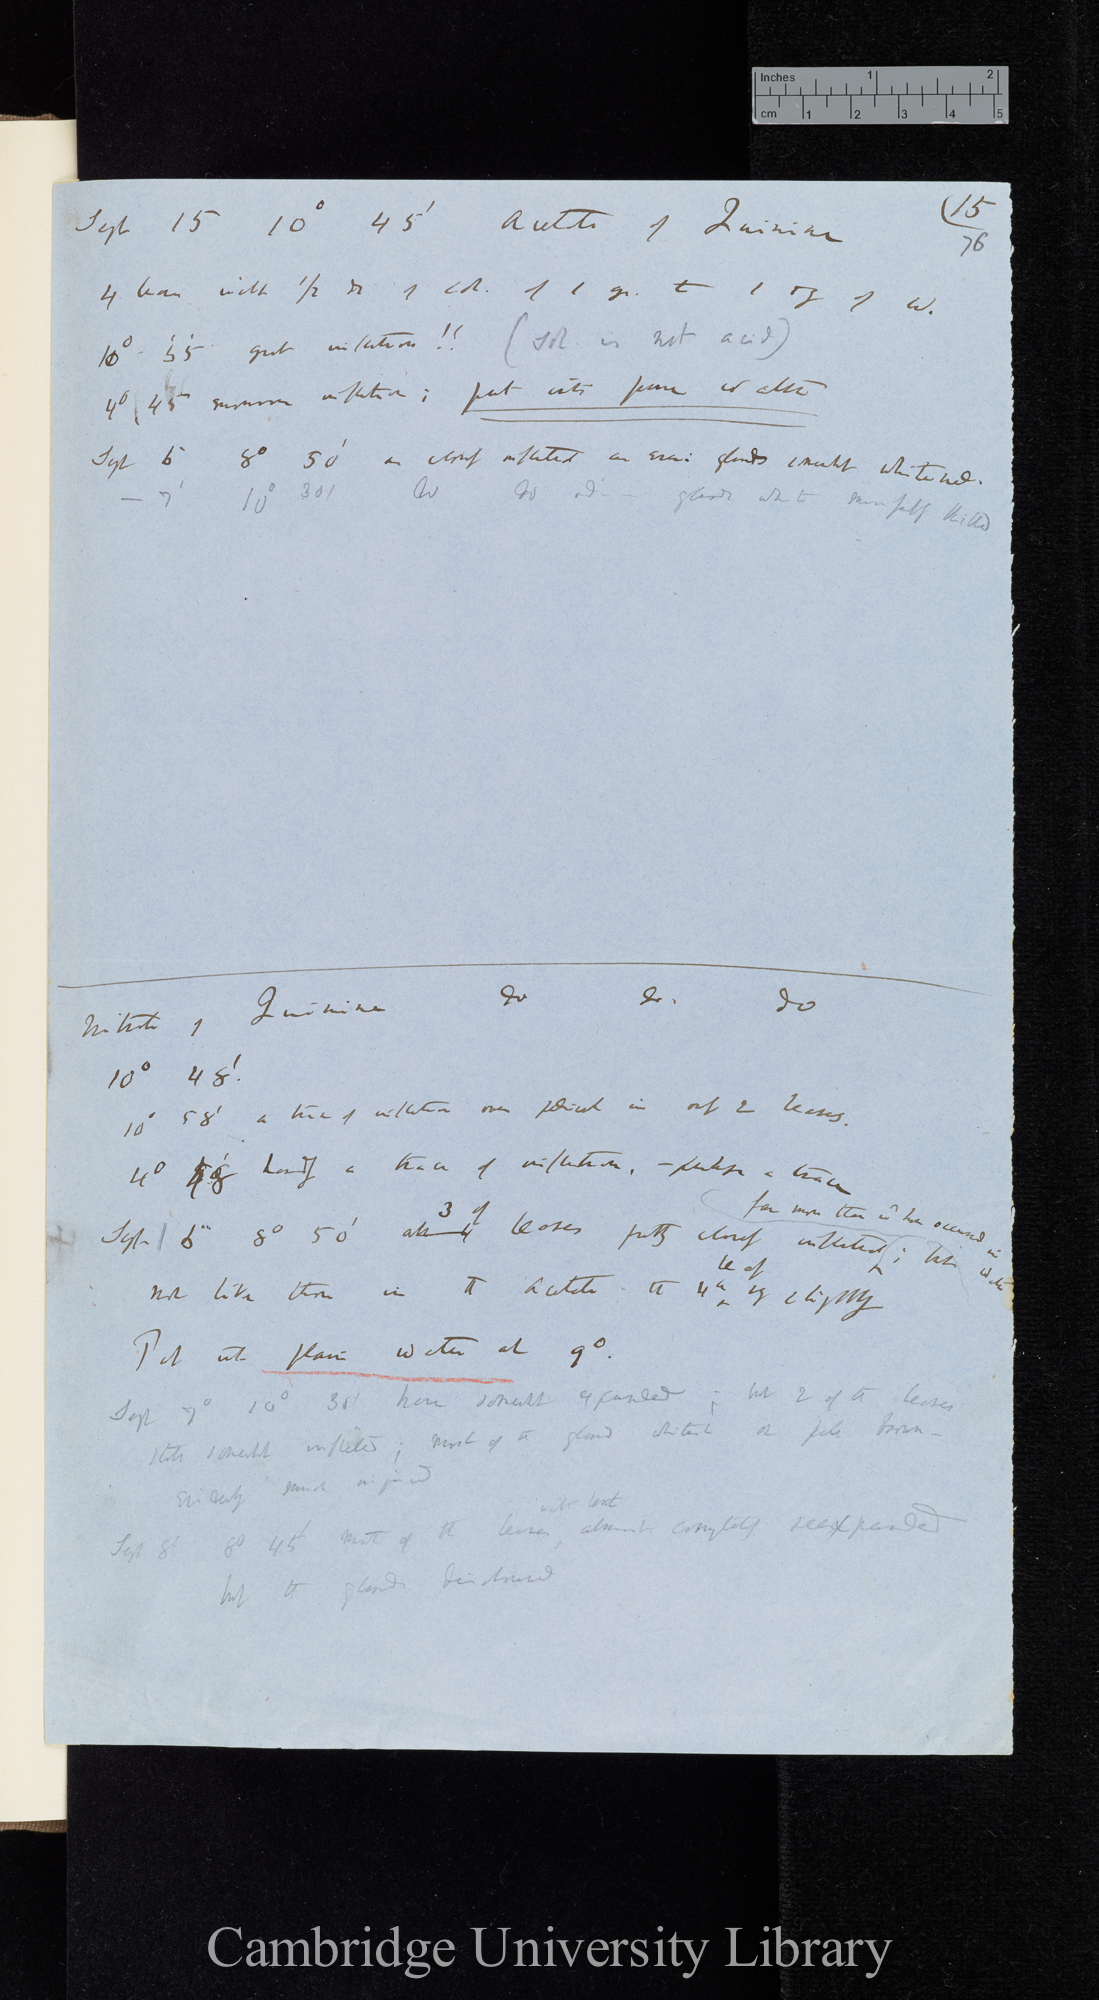 Inches 1 2
cm 1 2 3 4 5
(15
76
Sept 15 10° 45' Acetate of Quinine
4 leaves with 1/2 oz of sol. of 1 gr. to 1 oz of w.
10° 55' great inflection!! (Sol. is not acid)
4° 45' inflection; put into pure water
Sept 6 8° 50' are closely inflected glands somewhat whitened.
— 7' 10° 30' do do — glands white manifestly killed
Nitrate of Quinine do do. do
10° 48'.
10° 58' a trace of inflection over in out 2 leaves.
4° 48' hardly a trace of inflection, — perhaps a trace
far more than it has occurred in water
Sept 6 8° 50' 3 of leaves pretty closely inflected; but
leaf
not like those in the acetate. the 4th only slightly
Put into plain water at 9°.
Sept 7° 10° 30' have somewhat expanded; but 2 of the leaves
still somewhat inflected; most of the glands whitened or pale brown —
evidently much injured
Sept 8' 8° 45' most of the leaves, almost completely reexpanded
but the glands discoloured
Cambridge University Library